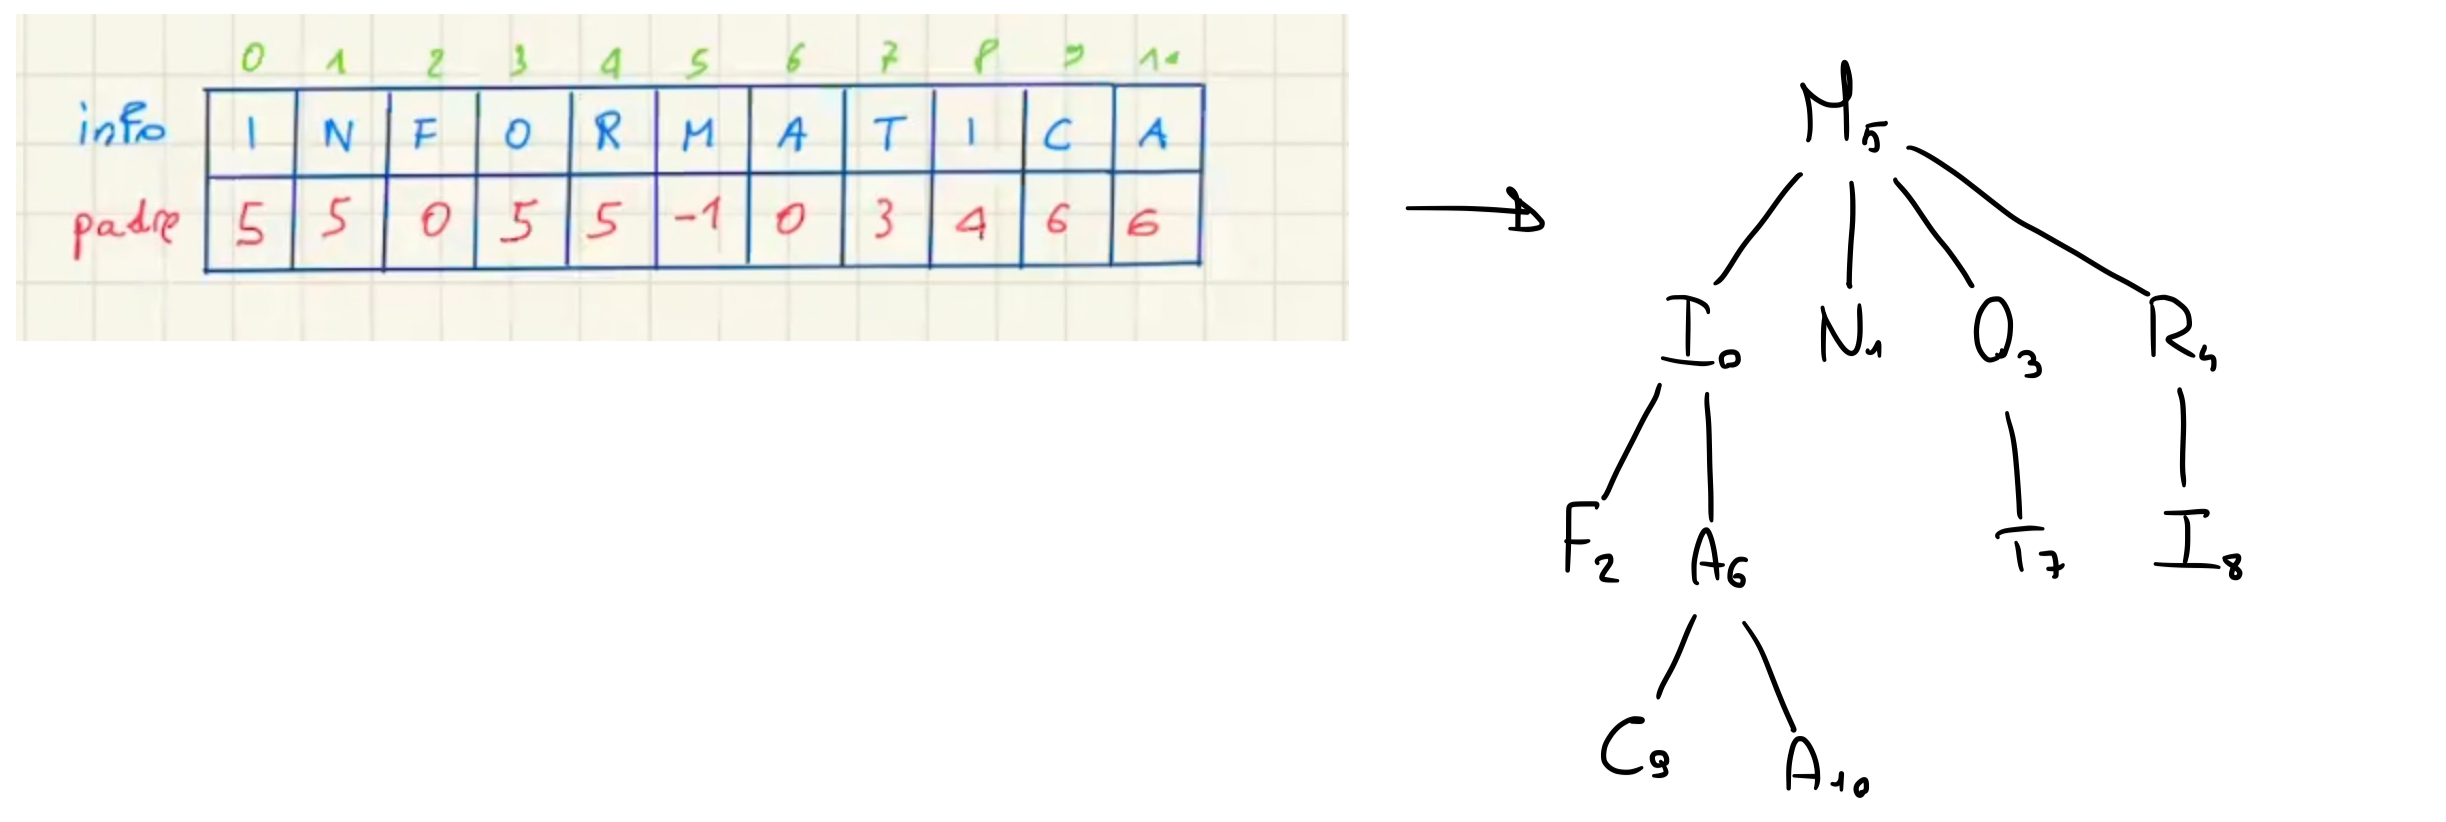 0 1 2 3 4 5 6 7 8 9 10
info I N F O R M A T I C A
padre 5 5 0 5 5 -1 0 3 4 6 6
M5
I0 N1 O3 R4
F2 A6 T7 I8
C9 A10